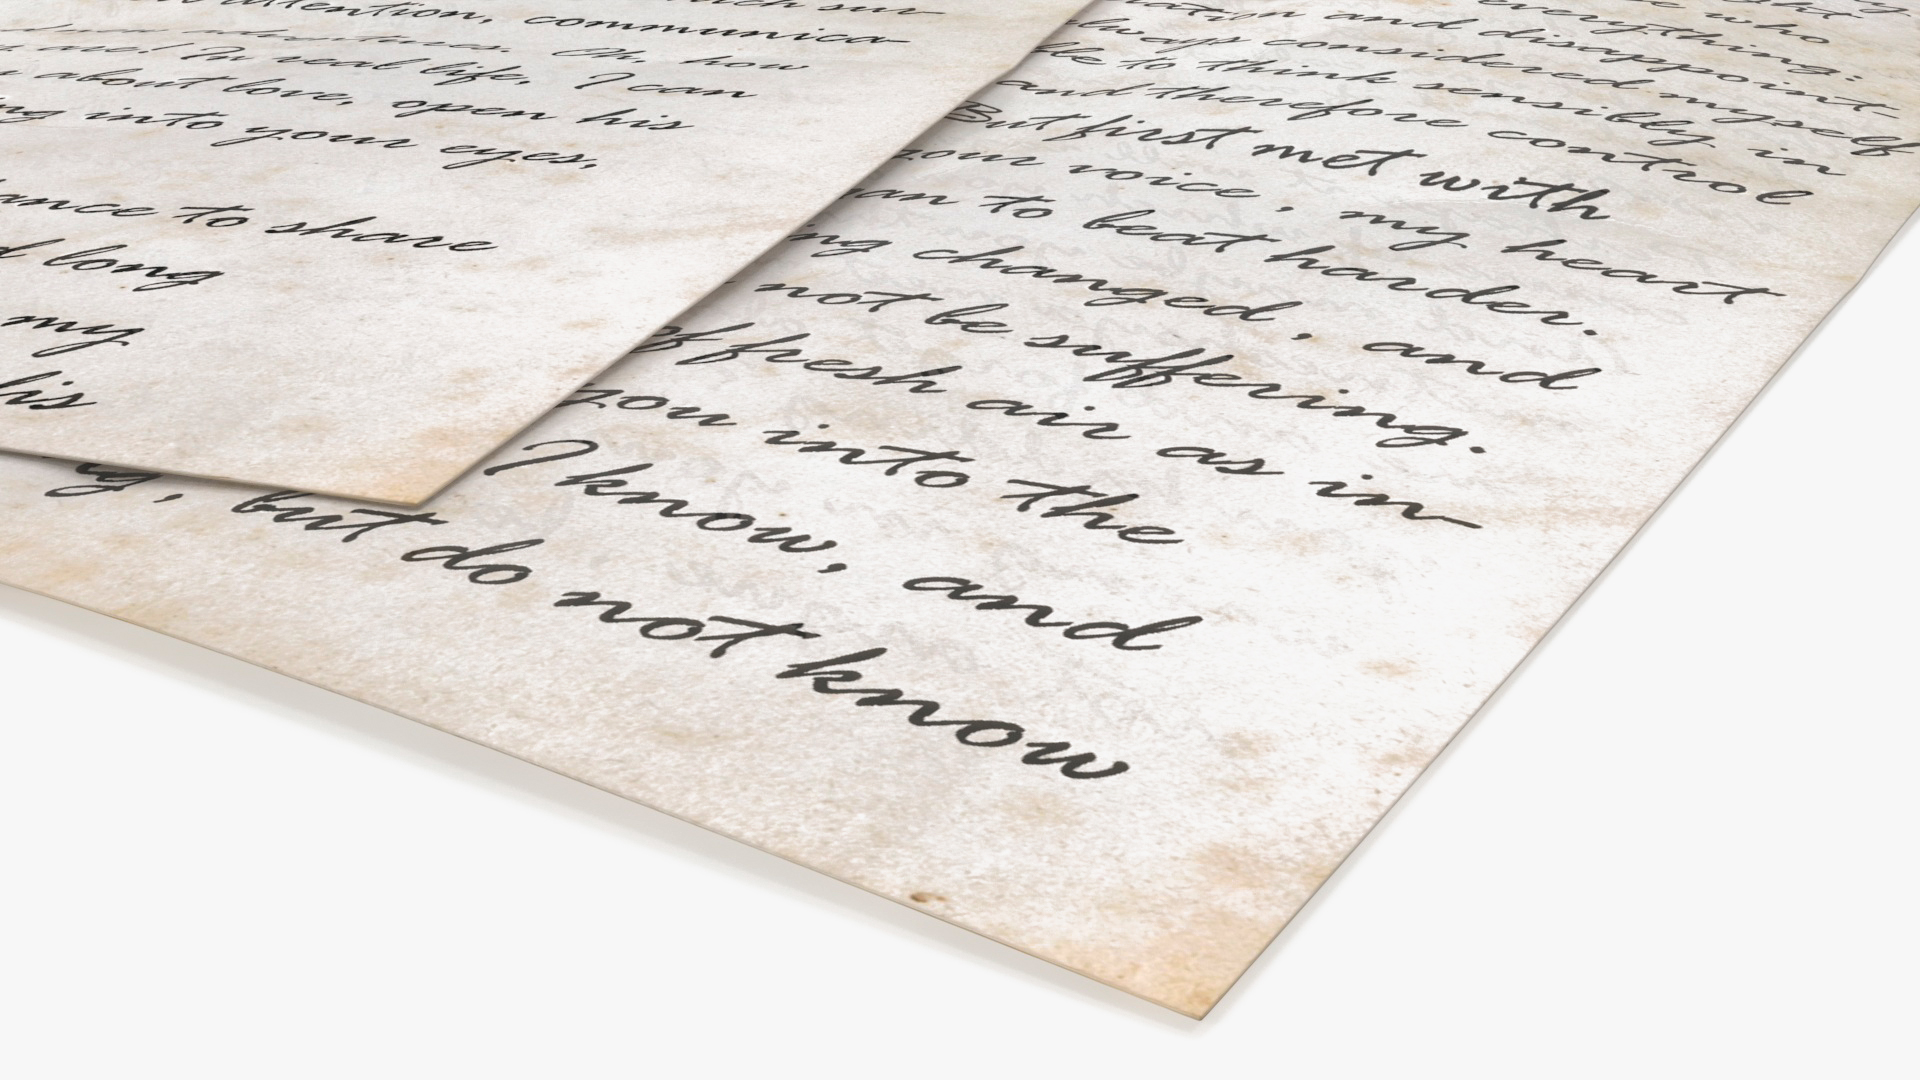 sur-
attention, communica-
adventures. Oh, how
are! In real life, I can
about love, open his
into your eyes,
to share
long
my
his
who
everything:
and disappoint-
always considered myself
to think sensibly in
and therefore control
But first met with
your voice, my heart
to beat harder.
changed, and
not be suffering.
of fresh air as in-
you into the
I know, and
but do not know